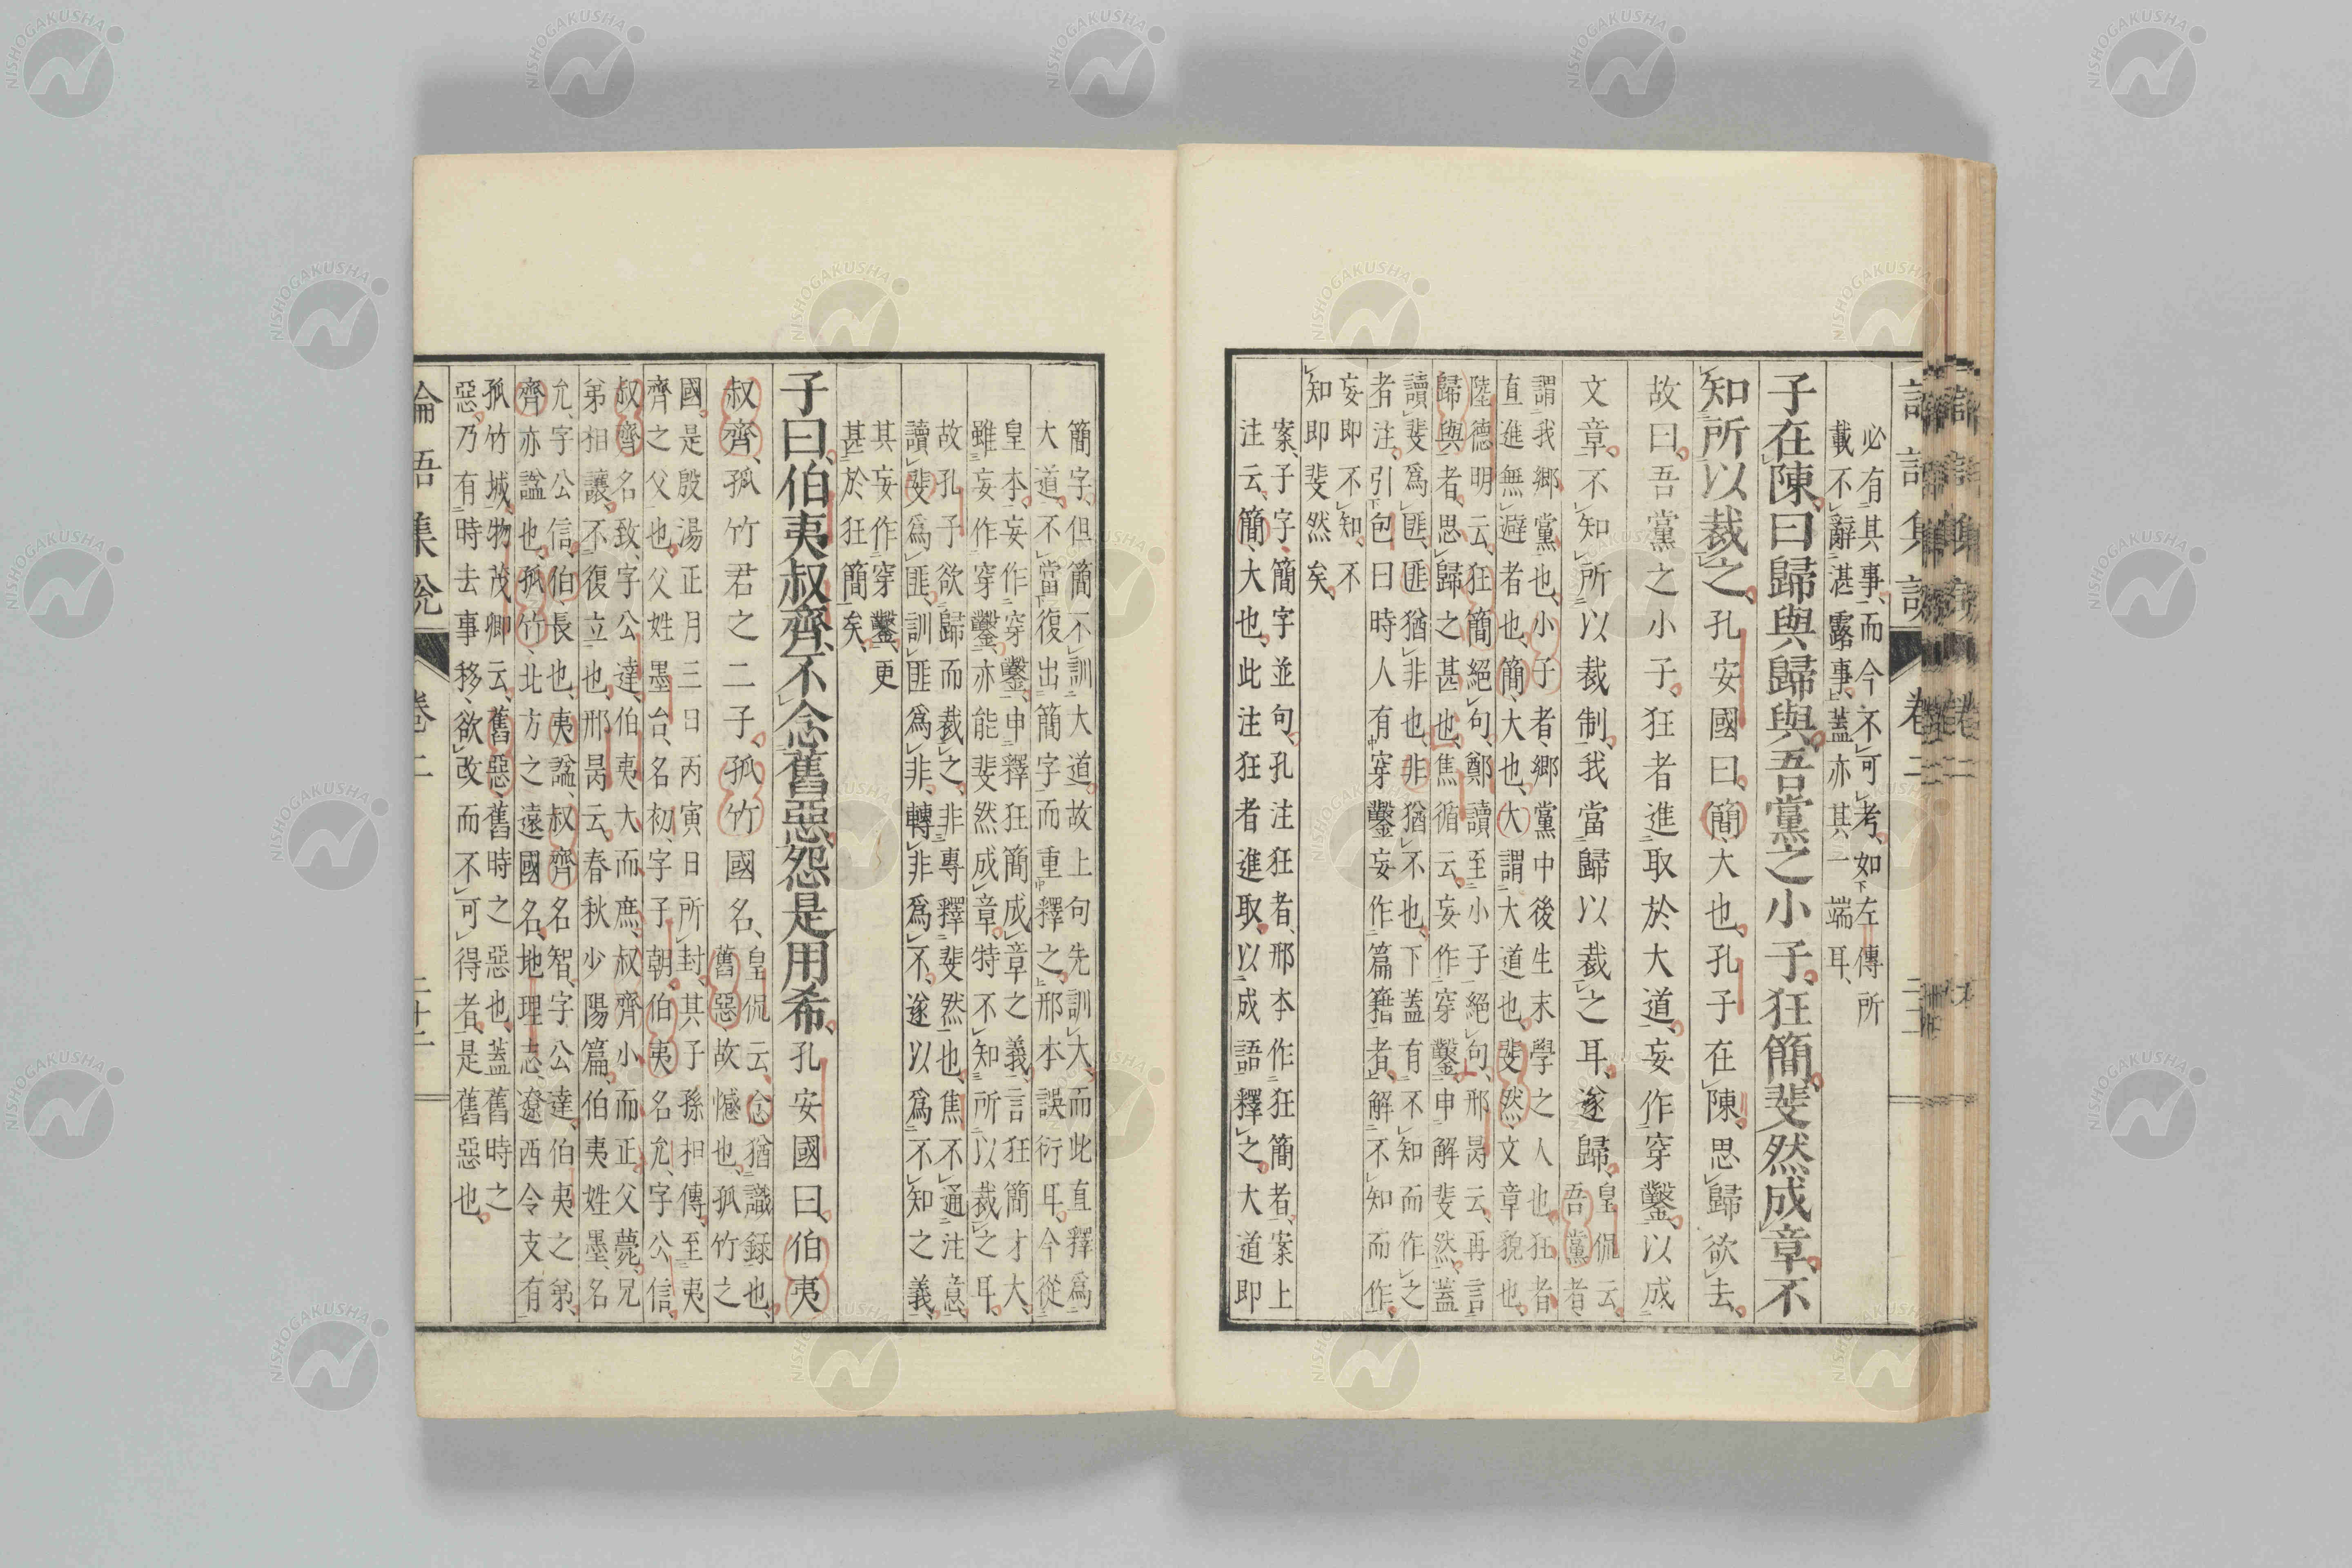 必有其事、而今不可考、如左傳所
載不辭湛露事、蓋亦其一端耳、
子在陳、曰歸與歸與、吾黨之小子、狂簡、斐然成章、不
知所以裁之、孔安國曰、簡大也、孔子在陳、思歸欲去、
故曰、吾黨之小子、狂者進取於大道、妄作穿鑿、以成
文章、不知所以裁制、我當歸以裁之耳、遂歸、皇侃云、
吾黨者、
謂我鄉黨也、小子者、鄉黨中後生末學之人也、狂者、
直進無避者也、簡、大也、大謂大道也、斐然、文章貌也、
陸德明云、狂簡絕句、鄭讀至小子絕句、邢昺云、再言
歸與者、思歸之甚也、焦循云、妄作穿鑿、申解斐然、蓋
讀斐爲匪、匪猶非也、非猶不也、下蓋有不知而作之
者、注、引包曰時人有穿鑿妄作篇籍者、解不知而作、
妄即不知、不
知即斐然矣、
案、子字、簡字並句、孔注狂者、邢本作狂簡者、案上
注云、簡、大也、此注狂者進取、以成語釋之、大道即
簡字、但簡不訓大道、故上句先訓大、而此直釋爲
大道、不當復出簡字而重釋之、邢本誤衍耳、今從
皇本、妄作穿鑿、申釋狂簡成章之義、言狂簡才大、
雖妄作穿鑿、亦能斐然成章、特不知所以裁之耳、
故孔子欲歸而裁之、非專釋斐然也、焦不通注意、
讀斐爲匪、訓匪爲非、轉非爲不、遂以爲不知之義、
其妄作穿鑿、更
甚於狂簡矣、
子曰、伯夷叔齊、不念舊惡、怨是用希、孔安國曰、伯夷
叔齊、孤竹君之二子、孤竹國名、皇侃云、念猶識錄也、
舊惡、故憾也、孤竹之
國、是殷湯正月三日丙寅日所封、其子孫相傳、至夷
齊之父也、父姓墨台、名初、字子朝、伯夷名允、字公信、
叔齊名致、字公達、伯夷大而庶、叔齊小而正、父薨、兄
弟相讓、不復立也、邢昺云、春秋少陽篇、伯夷姓墨、名
允、字公信、伯、長也、夷謚、叔齊名智、字公達、伯夷之弟、
齊亦謚也、孤竹、北方之遠國名、地理志、遼西令支有
孤竹城、物茂卿云、舊惡、舊時之惡也、蓋舊時之
惡、乃有時去事移、欲改而不可得者、是舊惡也、
論語集說 卷二 二十二
NISHOGAKUSHA